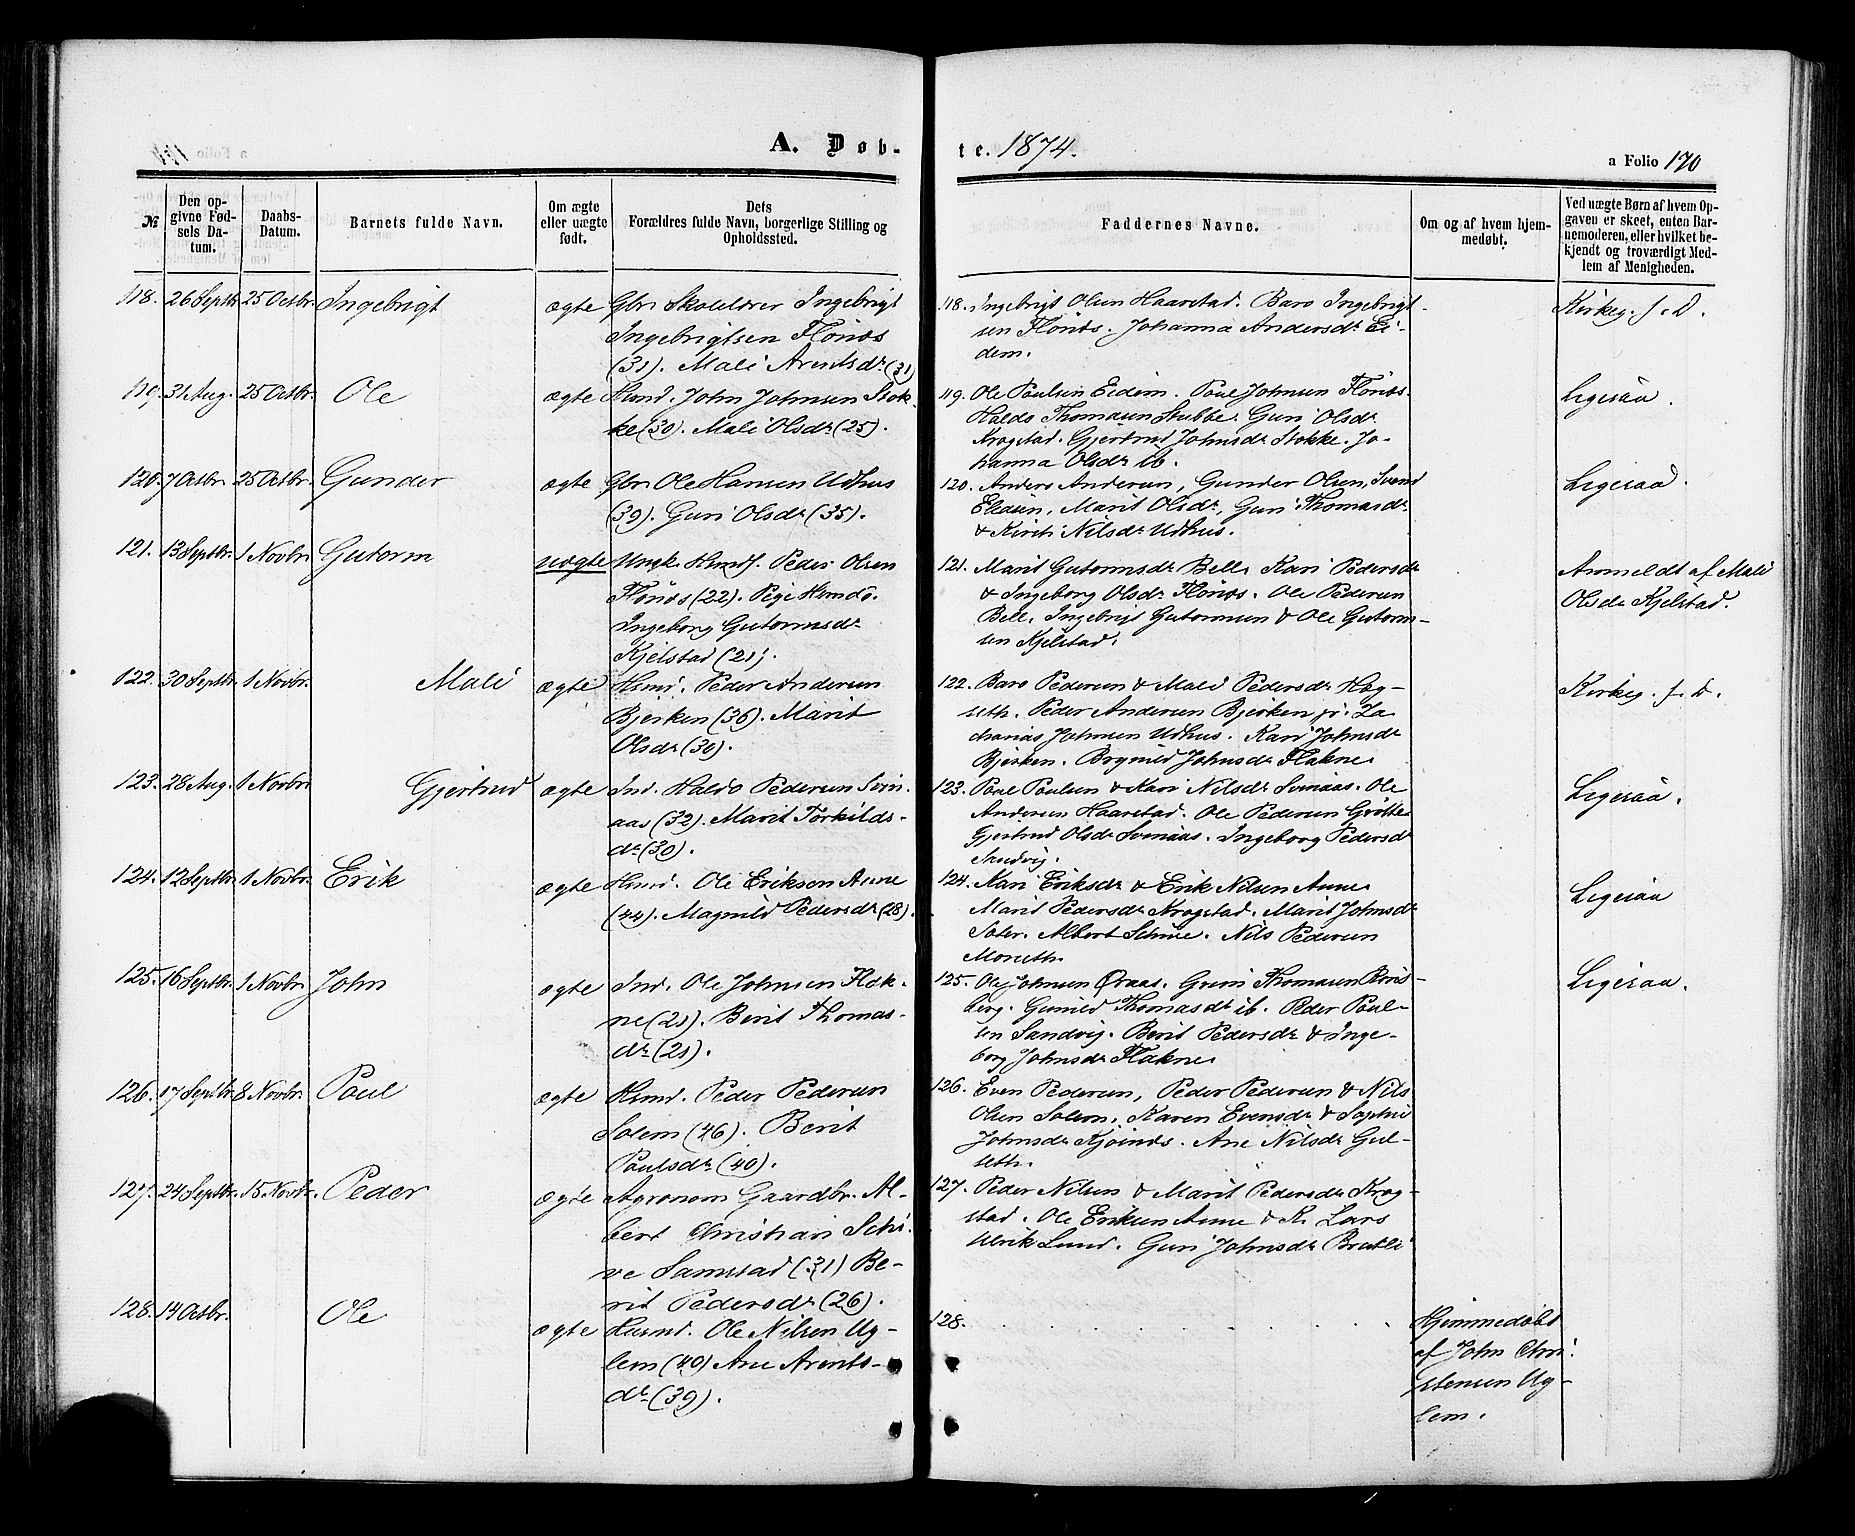 A. Døb-
te. 1874.
a Folio 170
№
Den op-
givne Fød-
sels Da-
tum.
Daabs-
Datum.
Barnets fulde Navn.
Om ægte
eller uægte
født.
Dets
Forældres fulde Navn, borgerlige Stilling og
Opholdssted.
Faddernes Navne.
Om og af hvem hjem-
medøbt.
Ved uægte Børn af hvem Op-
gaven er skeet, enten Bar-
nemoderen, eller hvilket be-
kjendt og troværdigt Med-
lem af Menigheden.
118. 26 Septbr. 25 Octbr. Ingebrigt ægte Gbr. Skolelærer Ingebrigt
Ingebrigtsen Flønæs
(31). Mali Arentsdr (31)
118. Ingebrigt Olsen Haarstad. Baro Ingebrigt-
sen Flønæs. Johanna Andersdr Ei-
dem.
Kirkeg. f. D.
119. 31 Aug. 25 Octbr. Ole ægte Husmd. John Johnsen Stok-
ke (30). Mali Olsdr (25).
119. Ole Paulsen Eidem. Poul Johnsen Flønæs.
Haldo Thomasen Stubbe. Guri Olsdr
Kragstad. Gjertrud Johnsdr Stokke. Jo-
hanna Olsdr ib.
Ligesaa.
120. 7 Octbr. 25 Octbr. Gunder ægte Gbr. Ole Hansen Udhus
(39). Guri Olsdr (35).
120. Anders Andersen, Gunder Olsen, Svend
Marit Olsdr, Guri Thomasdr
& Kirsti Nilsdr Udhus.
Ligesaa.
121. 13 Septbr. 1 Novbr. Gutorm uægte Ungk. Hsmdf. Peder Olsen
Flønæs (22). Pige Hsmdd.
Ingeborg Gutormsdr
Kjelstad (21).
121. Marit Gutormsdr Bell. Kari Pedersdr
& Ingeborg Olsdr Flønæs. Ole Pedersen
Bell. Ingebrigt Gutormsen & Ole Gutorm-
sen Kjelstad.
Anmeldt af Mali
Olsdr Kjelstad.
122. 30 Septbr. 1 Novbr. Mali ægte Hsmd. Peder Andersen
Bjerken (36). Marit
Olsdr (30).
122. Baro Pedersen & Mali Pedersdr Hog-
seth. Peder Andersen Bjerken jr. Za-
charias Johnsen Udhus. Kari Johnsdr
Bjerken. Brynild Johnsdr Flakne
Kirkeg. f. D.
123. 28 Aug. 1 Novbr. Gjertrud ægte Ind. Haldo Pedersen Svin-
aas (32). Marit Torkilds-
dr (30).
123. Poul Poulsen & Kari Nilsdr Svinaas. Ole
Andersen Haarstad. Ole Pedersen Grøtte
Gjertrud Olsdr Svinaas. Ingeborg Pedersdr
Sandvig.
Ligesaa.
124. 12 Septbr. 1 Novbr. Erik ægte Hsmd. Ole Eriksen Aune
(44). Magnild Pedersdr (28).
124. Kari Eriksdr & Erik Nilsen Aune
Marit Pedersdr Kragstad. Marit Johnsdr
Albert Schive. Nils Pedersen
Moseth.
Ligesaa
125. 16 Septbr. 1 Novbr. John ægte Ind. Ole Johnsen Flak-
ne (21). Berit Thomas-
dr (21).
125. Ole Johnsen Øraas. Guru Thomasen Roris-
berg. Gunild Thomasdr ib. Peder Poul-
sen Sandvig. Berit Pedersdr & Inge-
borg Johnsdr Flakne
Ligesaa.
126. 17 Septbr. 8 Novbr. Poul ægte Hsmd. Peder Pedersen
Solem (46). Berit
Poulsdr (40).
126. Even Pedersen, Peder Pedersen & Nils
Olsen Solem, Karen Evensdr & Sophie
Johnsdr Kjøinæs. Ane Nilsdr Gul-
seth.
127. 24 Septbr. 15 Novbr. Peder ægte Agronom Gaardbr. Al-
bert Christian Schi-
ve Samstad (31) Be-
rit Pedersdr (26).
127. Peder Nilsen & Marit Pedersdr Krog-
stad. Ole Eriksen Aune & K. Lars
Ulrik Lund. Guri Johnsdr Bratli
128. 14 Octbr. Ole ægte Husmd. Ole Nilsen Ug-
lem (40) Ane Arents-
dr (39).
128.
Hjemmedøbt
af John Chri-
stensen Ug-
lem.